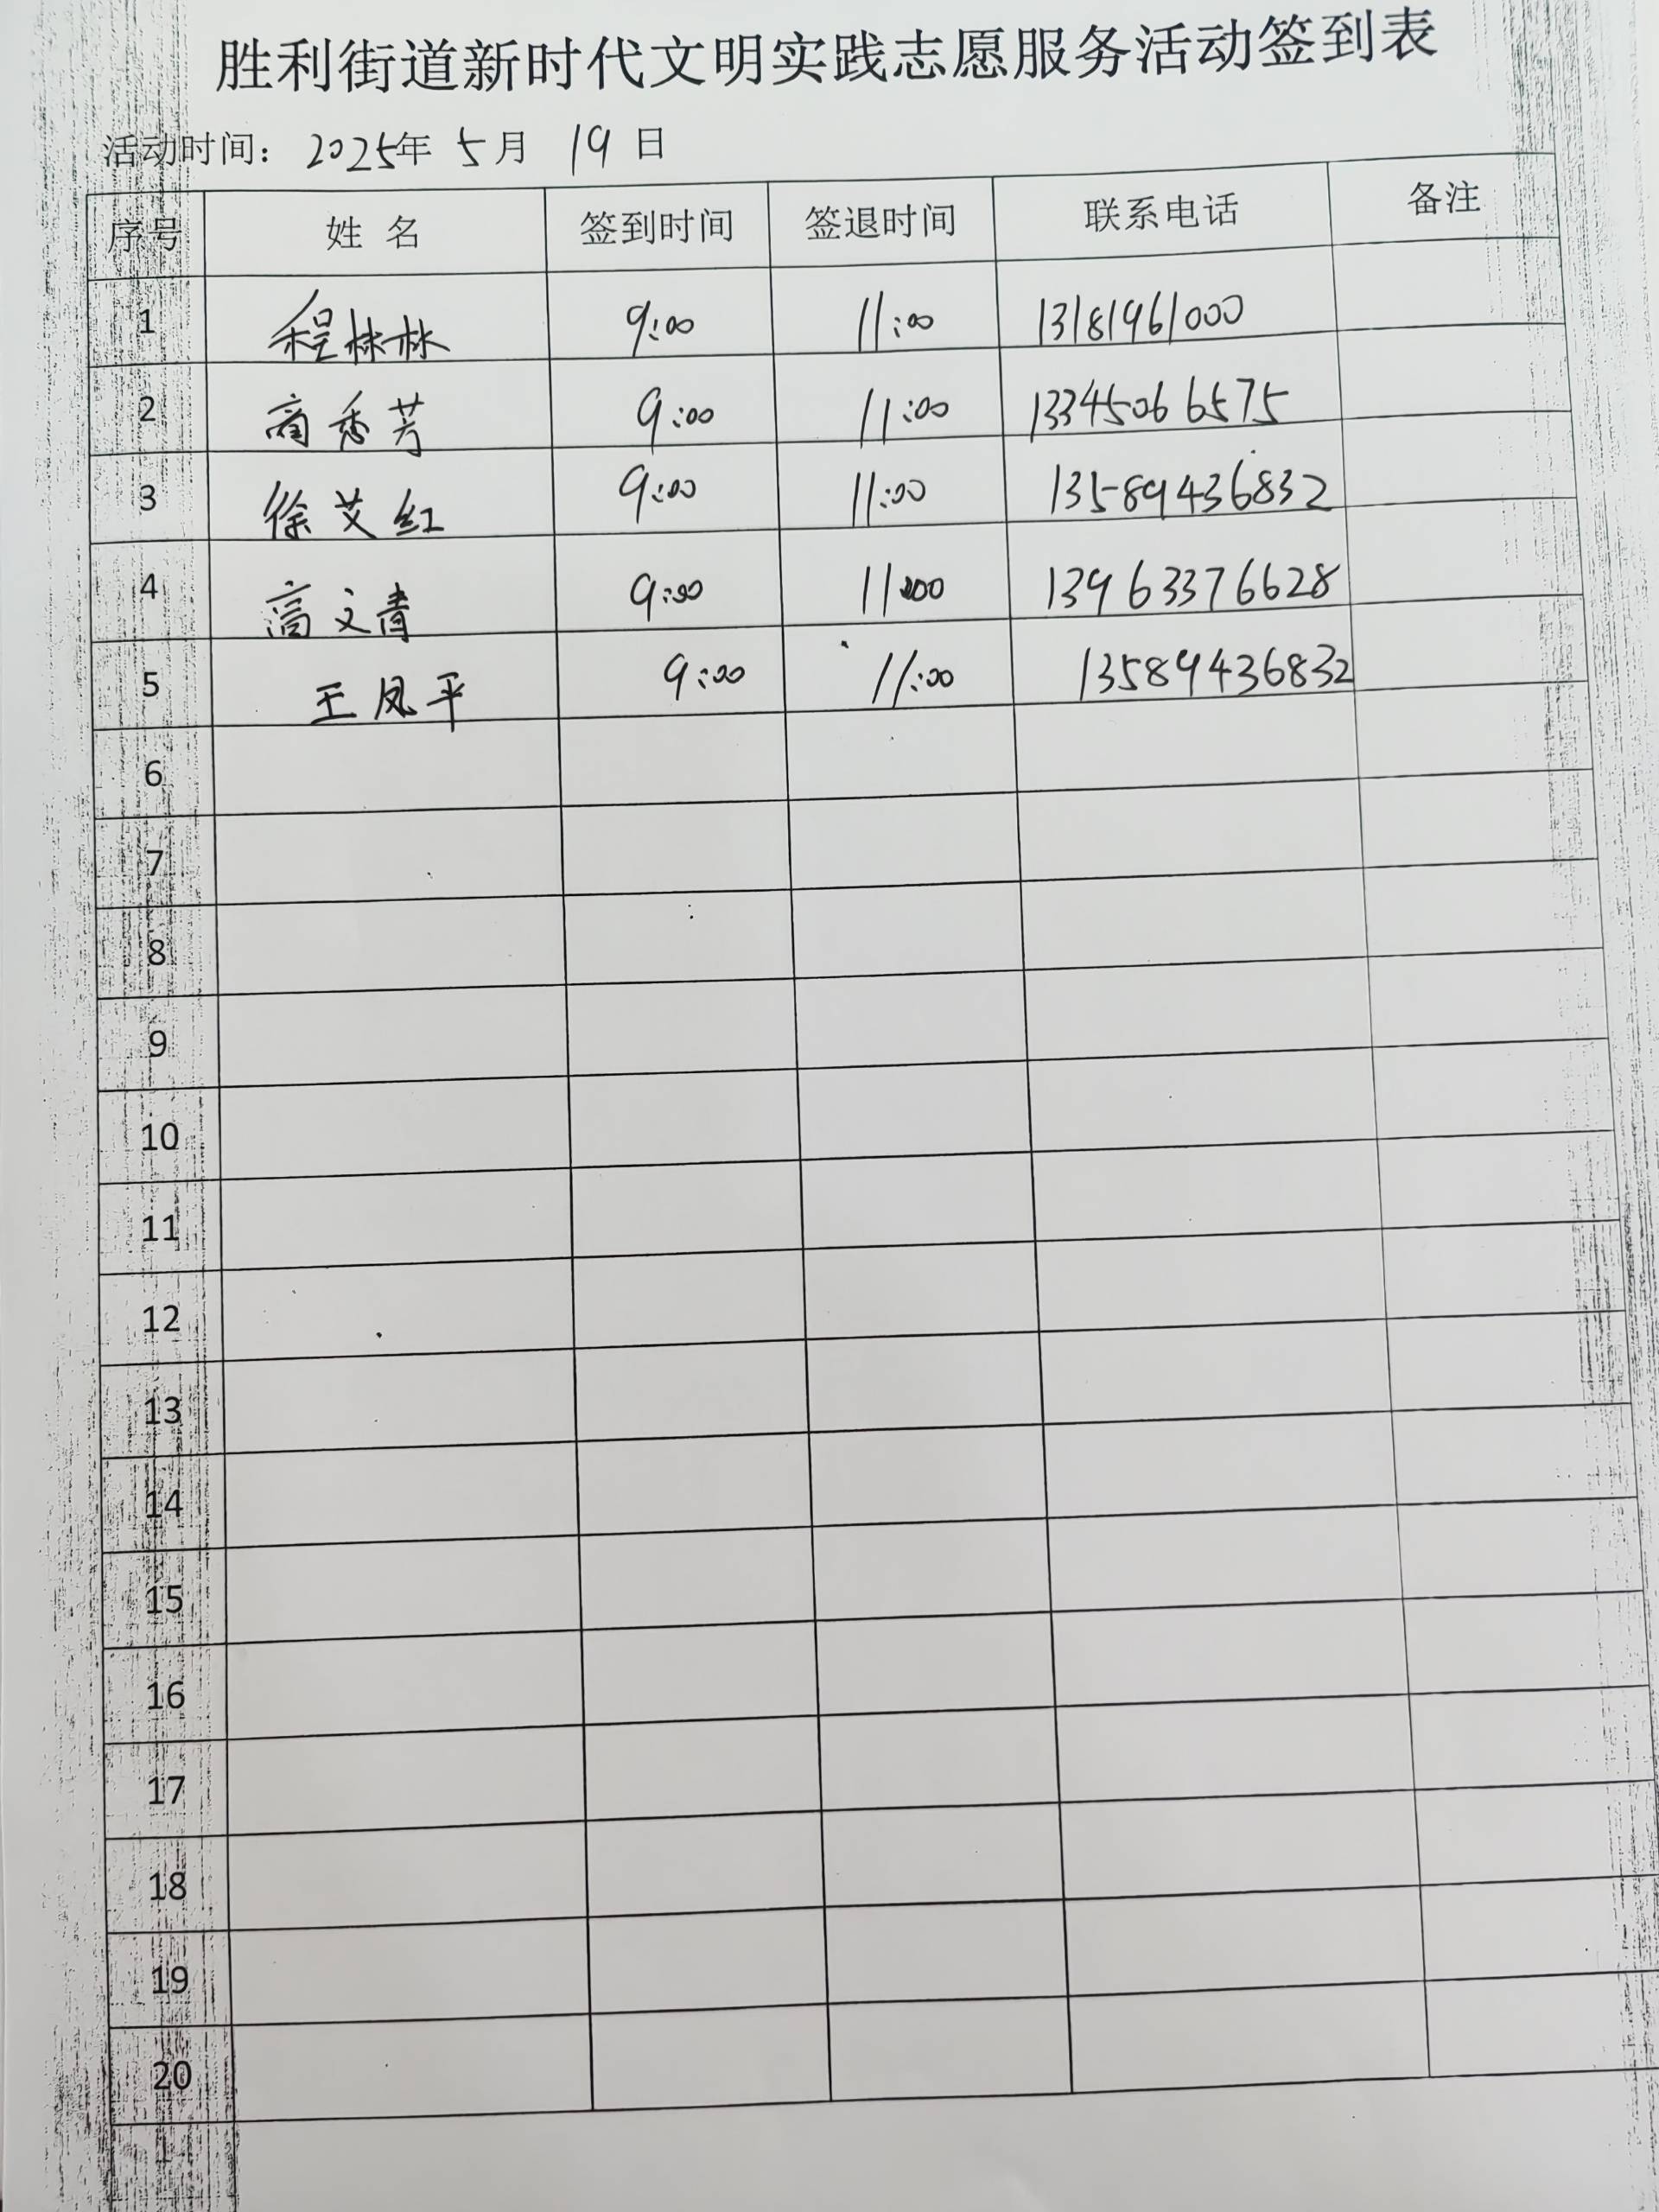 胜利街道新时代文明实践志愿服务活动签到表
活动时间： 2025年 5月 19日
序号 姓 名 签到时间 签退时间 联系电话 备注
1 程林林 9:00 11:00 13181961000
2 商秀芳 9:00 11:00 13345066575
3 徐艾红 9:00 11:00 13589436832
4 高文青 9:00 11:00 13963376628
5 王凤平 9:00 11:00 13589436832
6
7
8
9
10
11
12
13
14
15
16
17
18
19
20